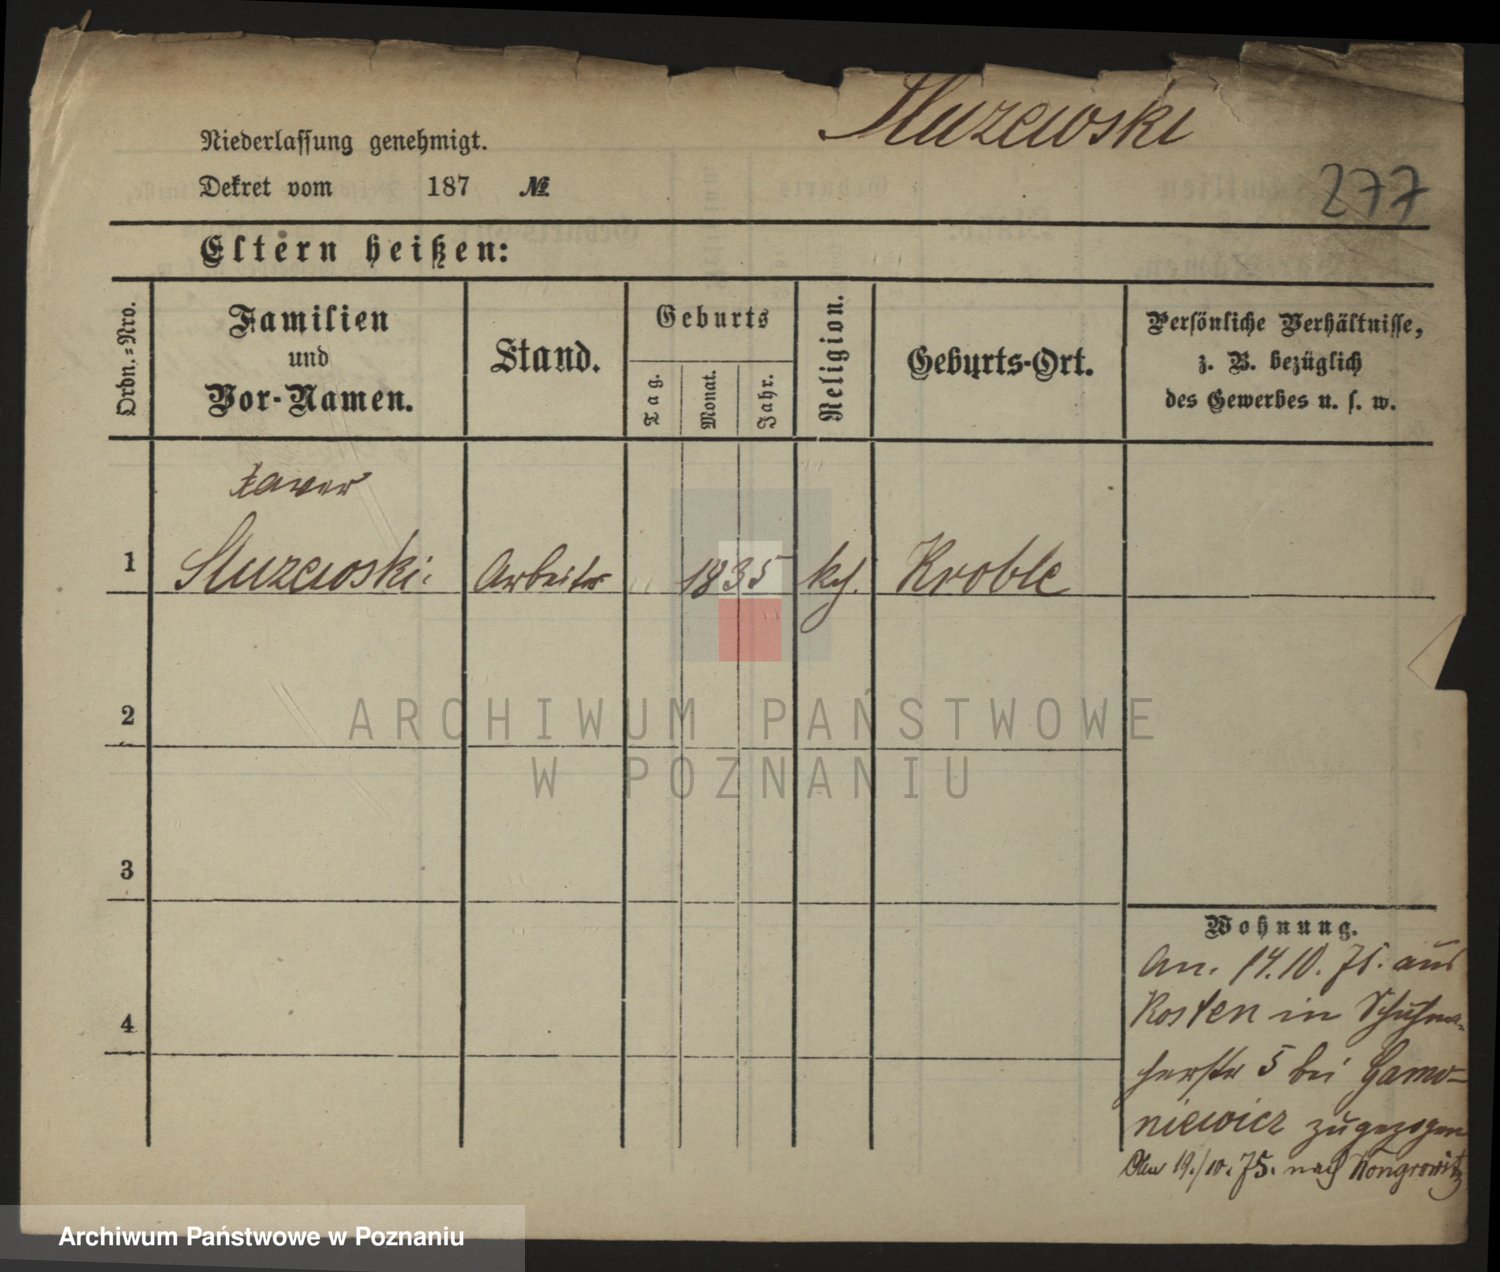 Sluzewski
Niederlassung genehmigt.
Dekret vom 187 №
277
Eltern heißen:
Ordn.=Nro.
Familien
und
Vor-Namen.
Stand.
Geburts
Tag.
Monat.
Jahr.
Religion.
Geburts-Ort.
Persönliche Verhältnisse,
z. B. bezüglich
des Gewerbes u. s. w.
Xaver
1 Sluzewski. Arbeiter 1835 kh. Kroble
2
3
4
Wohnung.
An. 14.10.75. aus
Kosten in Schuhma-
herstr 5 bei
niewicz zugezogen
19./10.75. nach Wongrowitz
ARCHIWUM PAŃSTWOWE
W POZNANIU
Archiwum Państwowe w Poznaniu